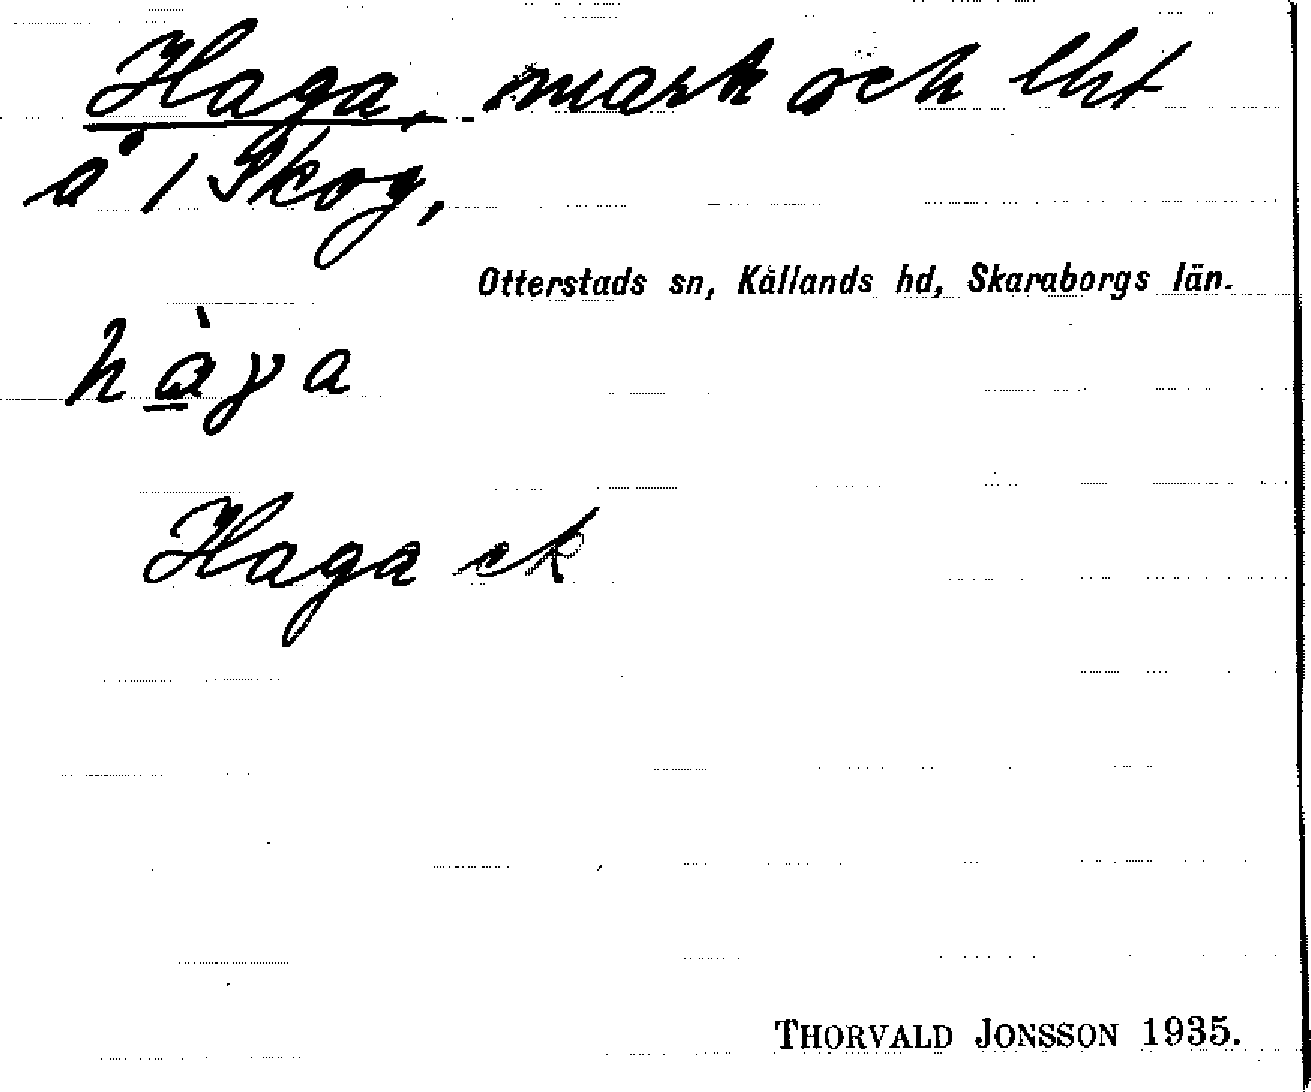 Haga, mark och lht
å 1 Skog,
Otterstads sn, Kållands hd, Skaraborgs län.
hàγa
Haga ek
THORVALD JONSSON 1935.